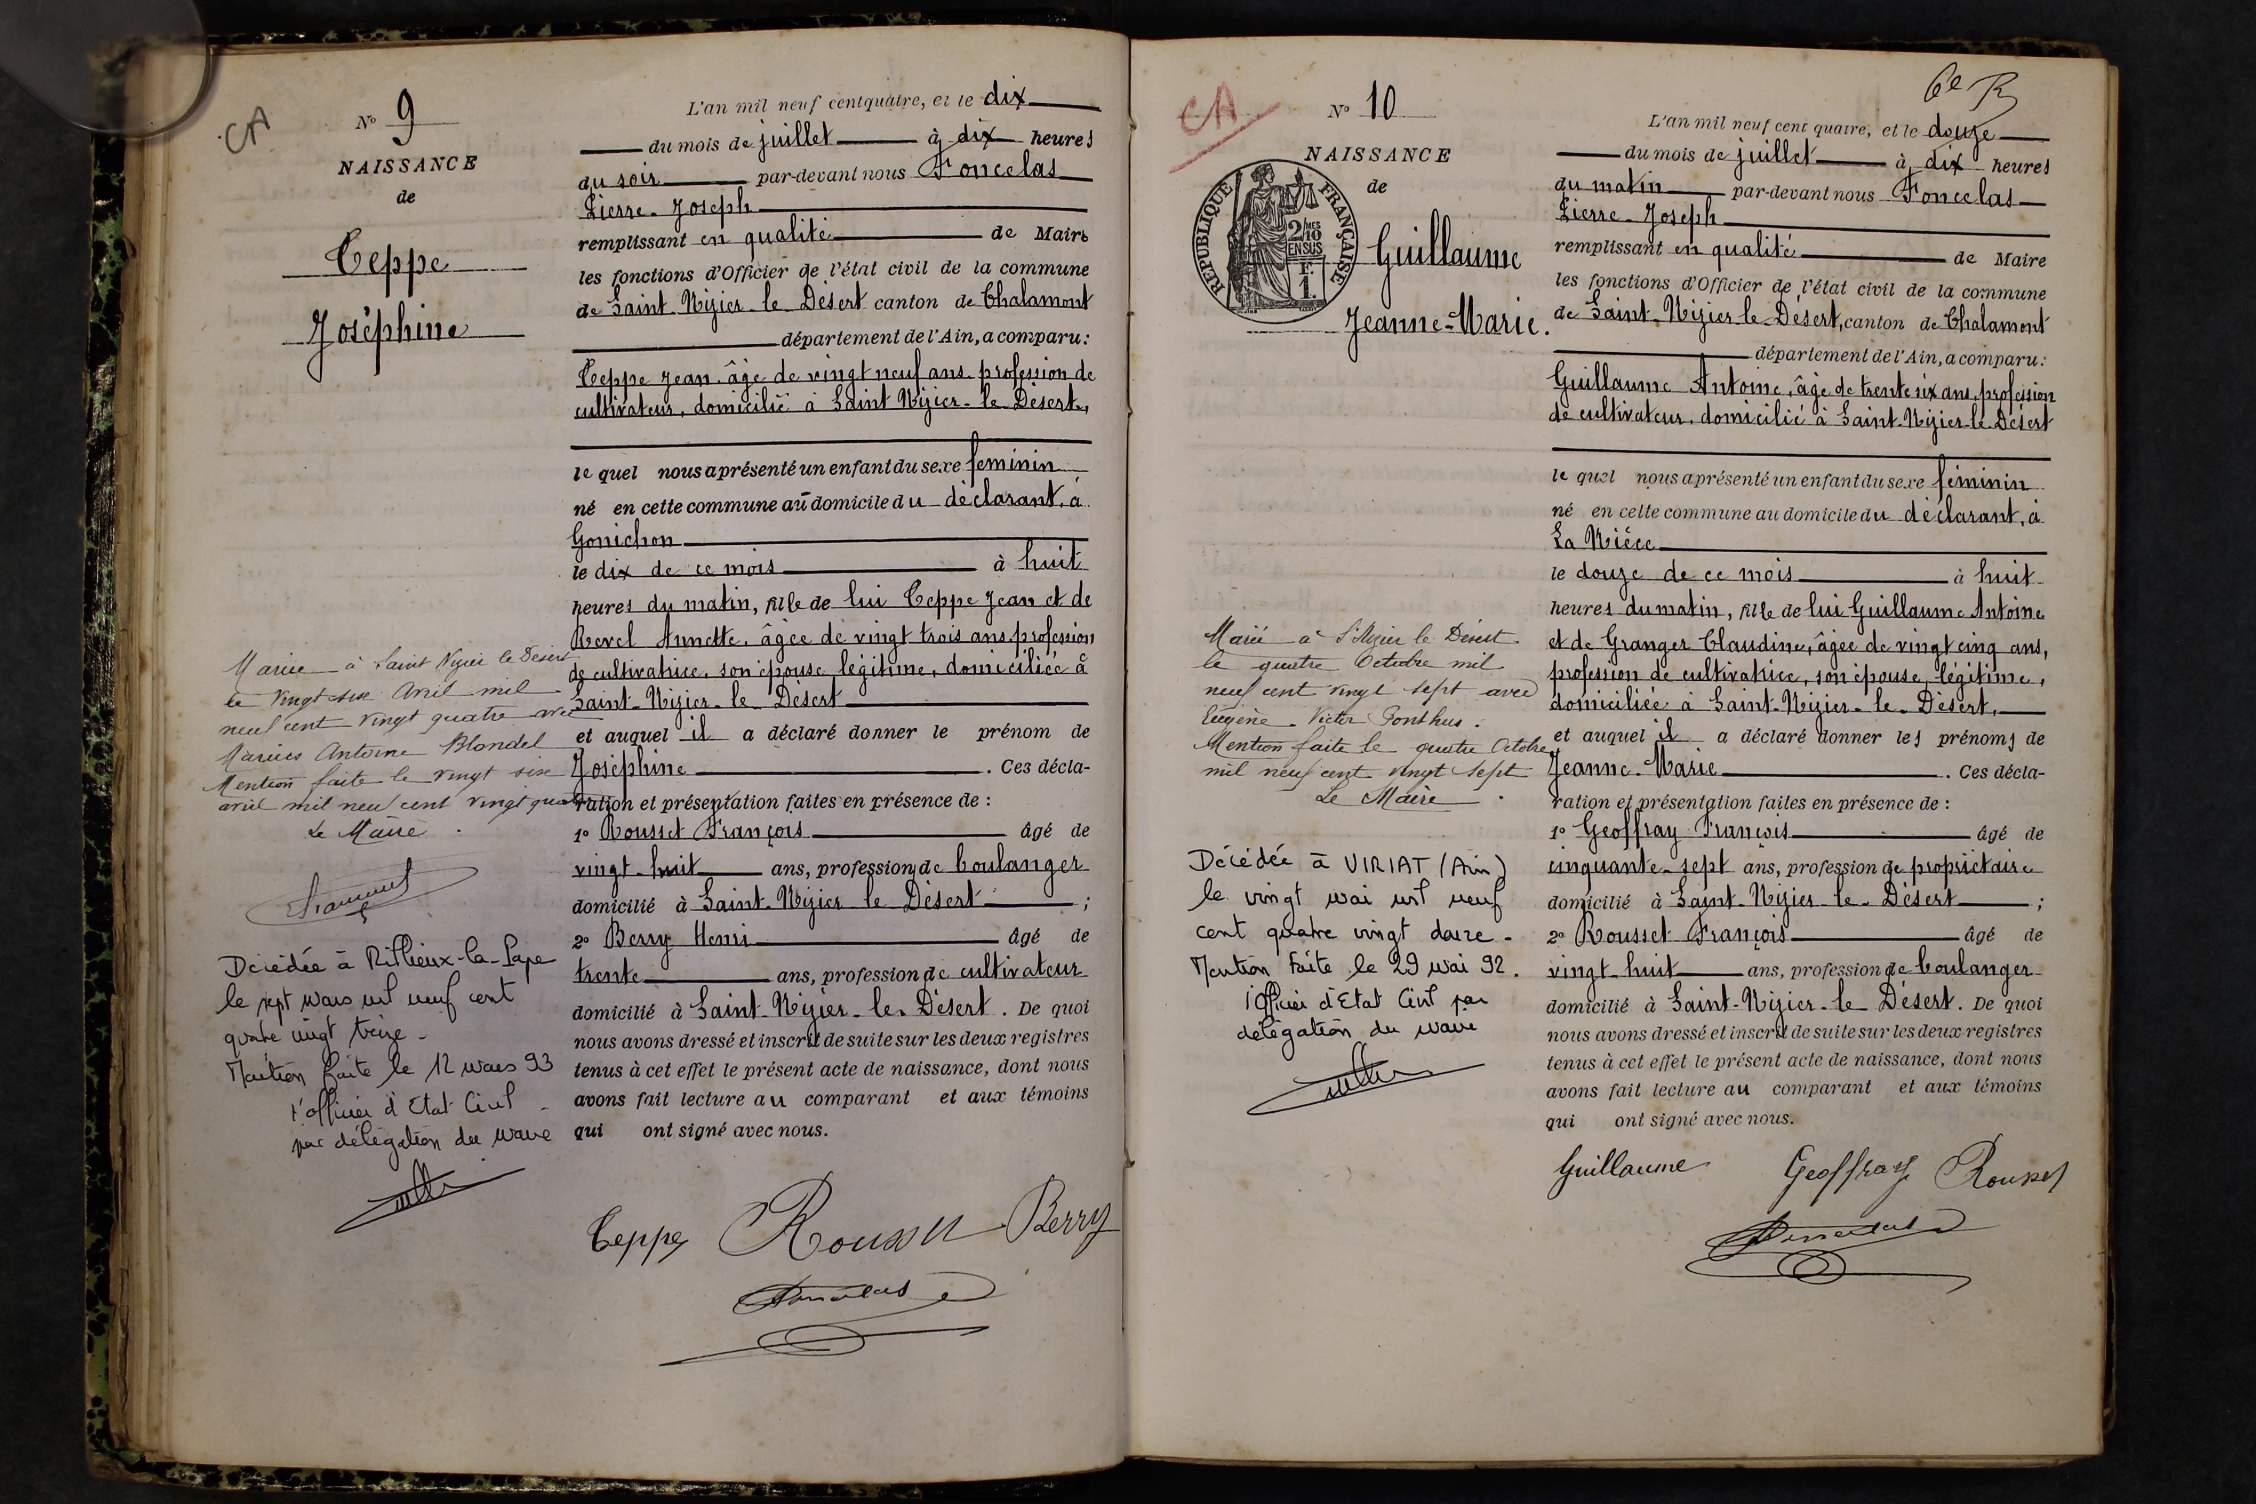 CA
Nº 9
NAISSANCE
de
Teppe
Joséphine
L'an mil neuf cent quatre, et le dix
du mois de juillet à dix heures
du soir par-devant nous Foncelas
Pierre-Joseph
remplissant en qualité de Maire
les fonctions d'Officier de l'état civil de la commune
de Saint-Nizier-le-Désert canton de Chalamont
département de l'Ain, a comparu:
Teppe Jean, âgé de vingt neuf ans, profession de
cultivateur, domicilié à Saint Nizier-le-Désert,
le quel nous a présenté un enfant du sexe féminin
né en cette commune au domicile du déclarant, à
Gonichon
le dix de ce mois à huit
heures du matin, fille de lui Teppe Jean et de
Revel Annette, âgée de vingt trois ans, profession
de cultivatrice, son épouse légitime, domiciliée à
Saint-Nizier-le-Désert
et auquel il a déclaré donner le prénom de
Joséphine. Ces décla-
ration et présentation faites en présence de:
1º Rousset François âgé de
vingt-huit ans, profession de boulanger
domicilié à Saint-Nizier-le-Désert;
2º Berry Henri âgé de
trente ans, profession de cultivateur
domicilié à Saint-Nizier-le-Désert. De quoi
nous avons dressé et inscrit de suite sur les deux registres
tenus à cet effet le présent acte de naissance, dont nous
avons fait lecture au comparant et aux témoins
qui ont signé avec nous.
Teppe Rousset Berry
Mariée à Saint Nizier le Désert
le vingt six Avril mil
neuf cent vingt quatre avec
Marius Antoine Blondel
Mention faite le vingt six
avril mil neuf cent vingt quatre
Le Maire.
Décédée à Rillieux-la-Pape
le sept mars mil neuf cent
quatre vingt treize -
Mention faite le 12 mars 93
l'officier d'Etat Civil
par délégation du maire
CA
Nº 10
NAISSANCE
de
RÉPUBLIQUE FRANÇAISE
2/10 MES
EN SUS
1 F.
Guillaume
Jeanne-Marie.
L'an mil neuf cent quatre, et le douze
du mois de juillet à dix heures
du matin par-devant nous Foncelas
Pierre-Joseph
remplissant en qualité de Maire
les fonctions d'Officier de l'état civil de la commune
de Saint-Nizier-le-Désert, canton de Chalamont
département de l'Ain, a comparu:
Guillaume Antoine, âgé de trente six ans, profession
de cultivateur, domicilié à Saint-Nizier-le-Désert
le quel nous a présenté un enfant du sexe féminin
né en cette commune au domicile du déclarant, à
La Nièce
le douze de ce mois à huit
heures du matin, fille de lui Guillaume Antoine
et de Granger Claudine, âgée de vingt cinq ans,
profession de cultivatrice, son épouse légitime,
domiciliée à Saint-Nizier-le-Désert,
et auquel il a déclaré donner les prénoms de
Jeanne-Marie. Ces décla-
ration et présentation faites en présence de:
1º Geoffray François âgé de
cinquante-sept ans, profession de propriétaire
domicilié à Saint-Nizier-le-Désert;
2º Rousset François âgé de
vingt-huit ans, profession de boulanger
domicilié à Saint-Nizier-le-Désert. De quoi
nous avons dressé et inscrit de suite sur les deux registres
tenus à cet effet le présent acte de naissance, dont nous
avons fait lecture au comparant et aux témoins
qui ont signé avec nous.
Guillaume Geoffray Rousset
Mariée à St Nizier le Désert
le quatre Octobre mil
neuf cent vingt sept avec
Eugène-Victor Ponthus.
Mention faite le quatre Octobre
mil neuf cent vingt sept
Le Maire.
Décédée à VIRIAT (Ain)
le vingt mai mil neuf
cent quatre vingt douze -
Mention faite le 29 mai 92.
l'Officier d'Etat Civil par
délégation du maire